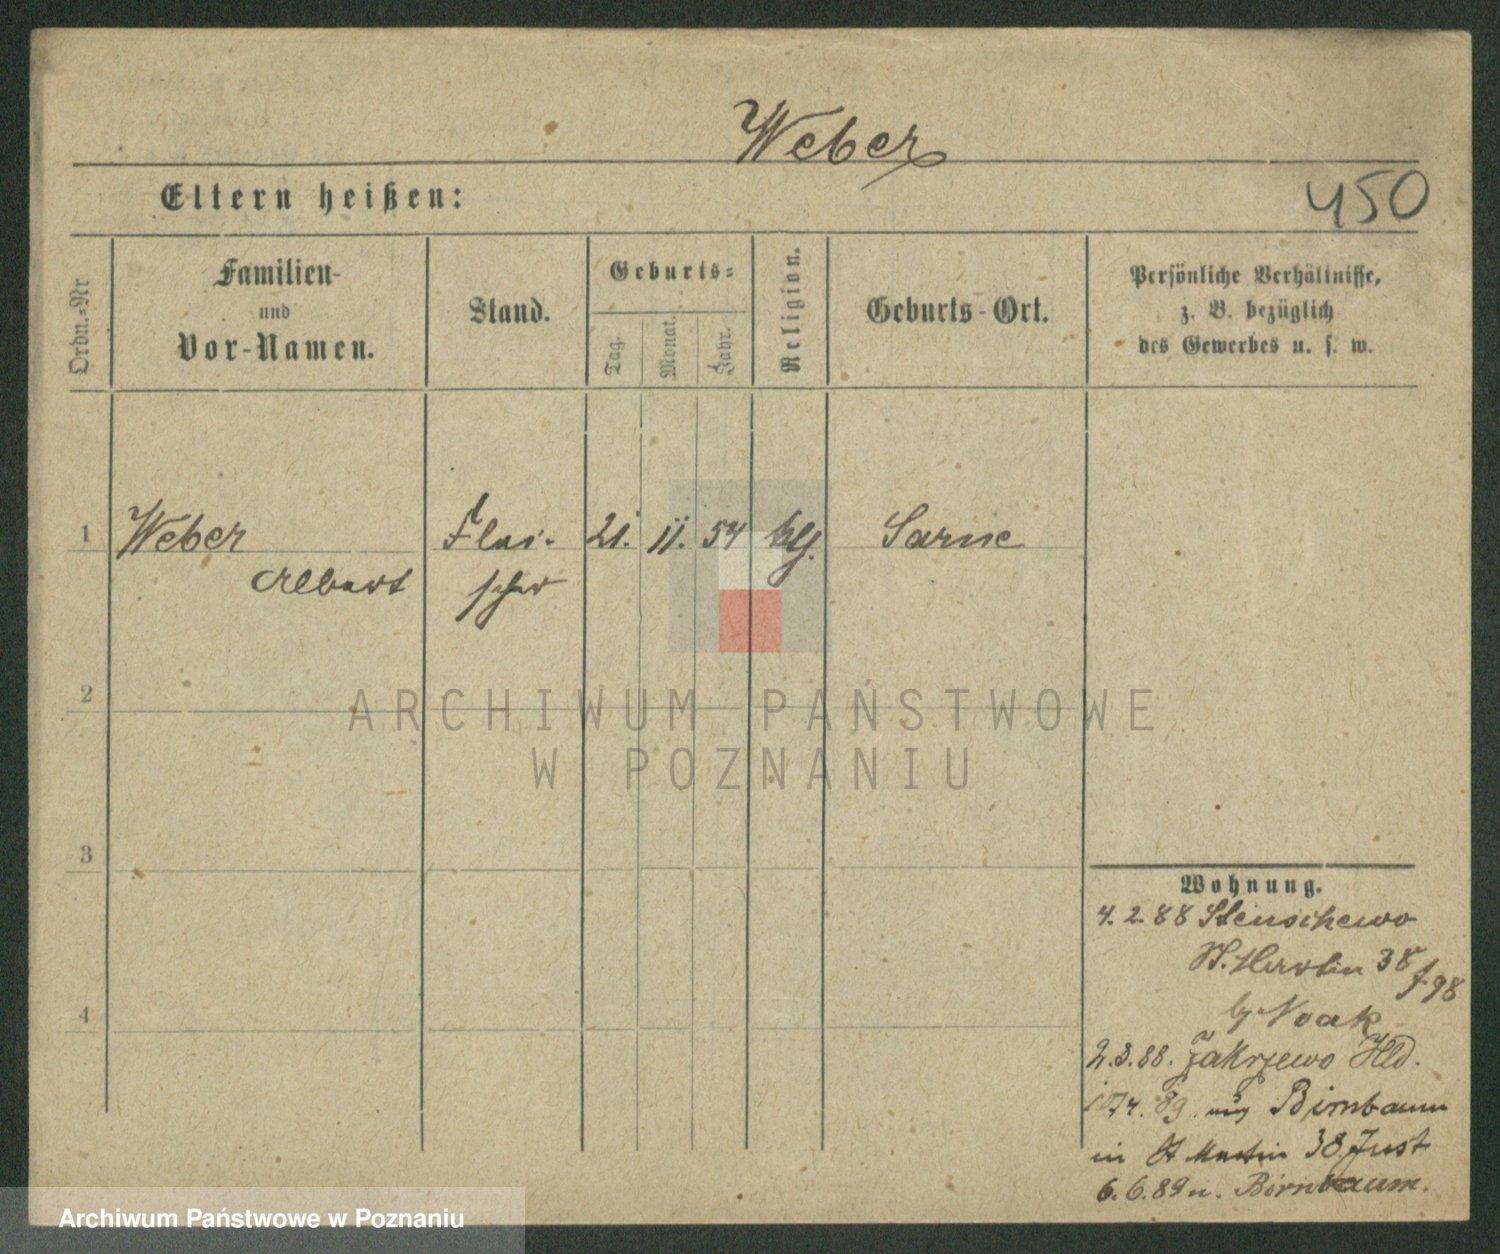 Weber
Eltern heißen:
450
Ordn.=Nr
Familien-
und
Vor-Namen.
Stand.
Geburts=
Tag.
Monat.
Jahr.
Religion.
Geburts-Ort.
Persönliche Verhältnisse,
z. B. bezüglich
des Gewerbes u. s. w.
1
Weber
Albert
Flei-
scher
21. 11. 54
Sarne
2
ARCHIWUM PAŃSTWOWE
W POZNANIU
3
Wohnung.
4. 2. 88 Stenschewo
St. Martin 38
Noak
4
2. 3. 88. Zakrzewo Hld.
4. 89. Birnbaum
in St Martin 38. Just
6. 6. 89 n. Birnbaum.
Archiwum Państwowe w Poznaniu